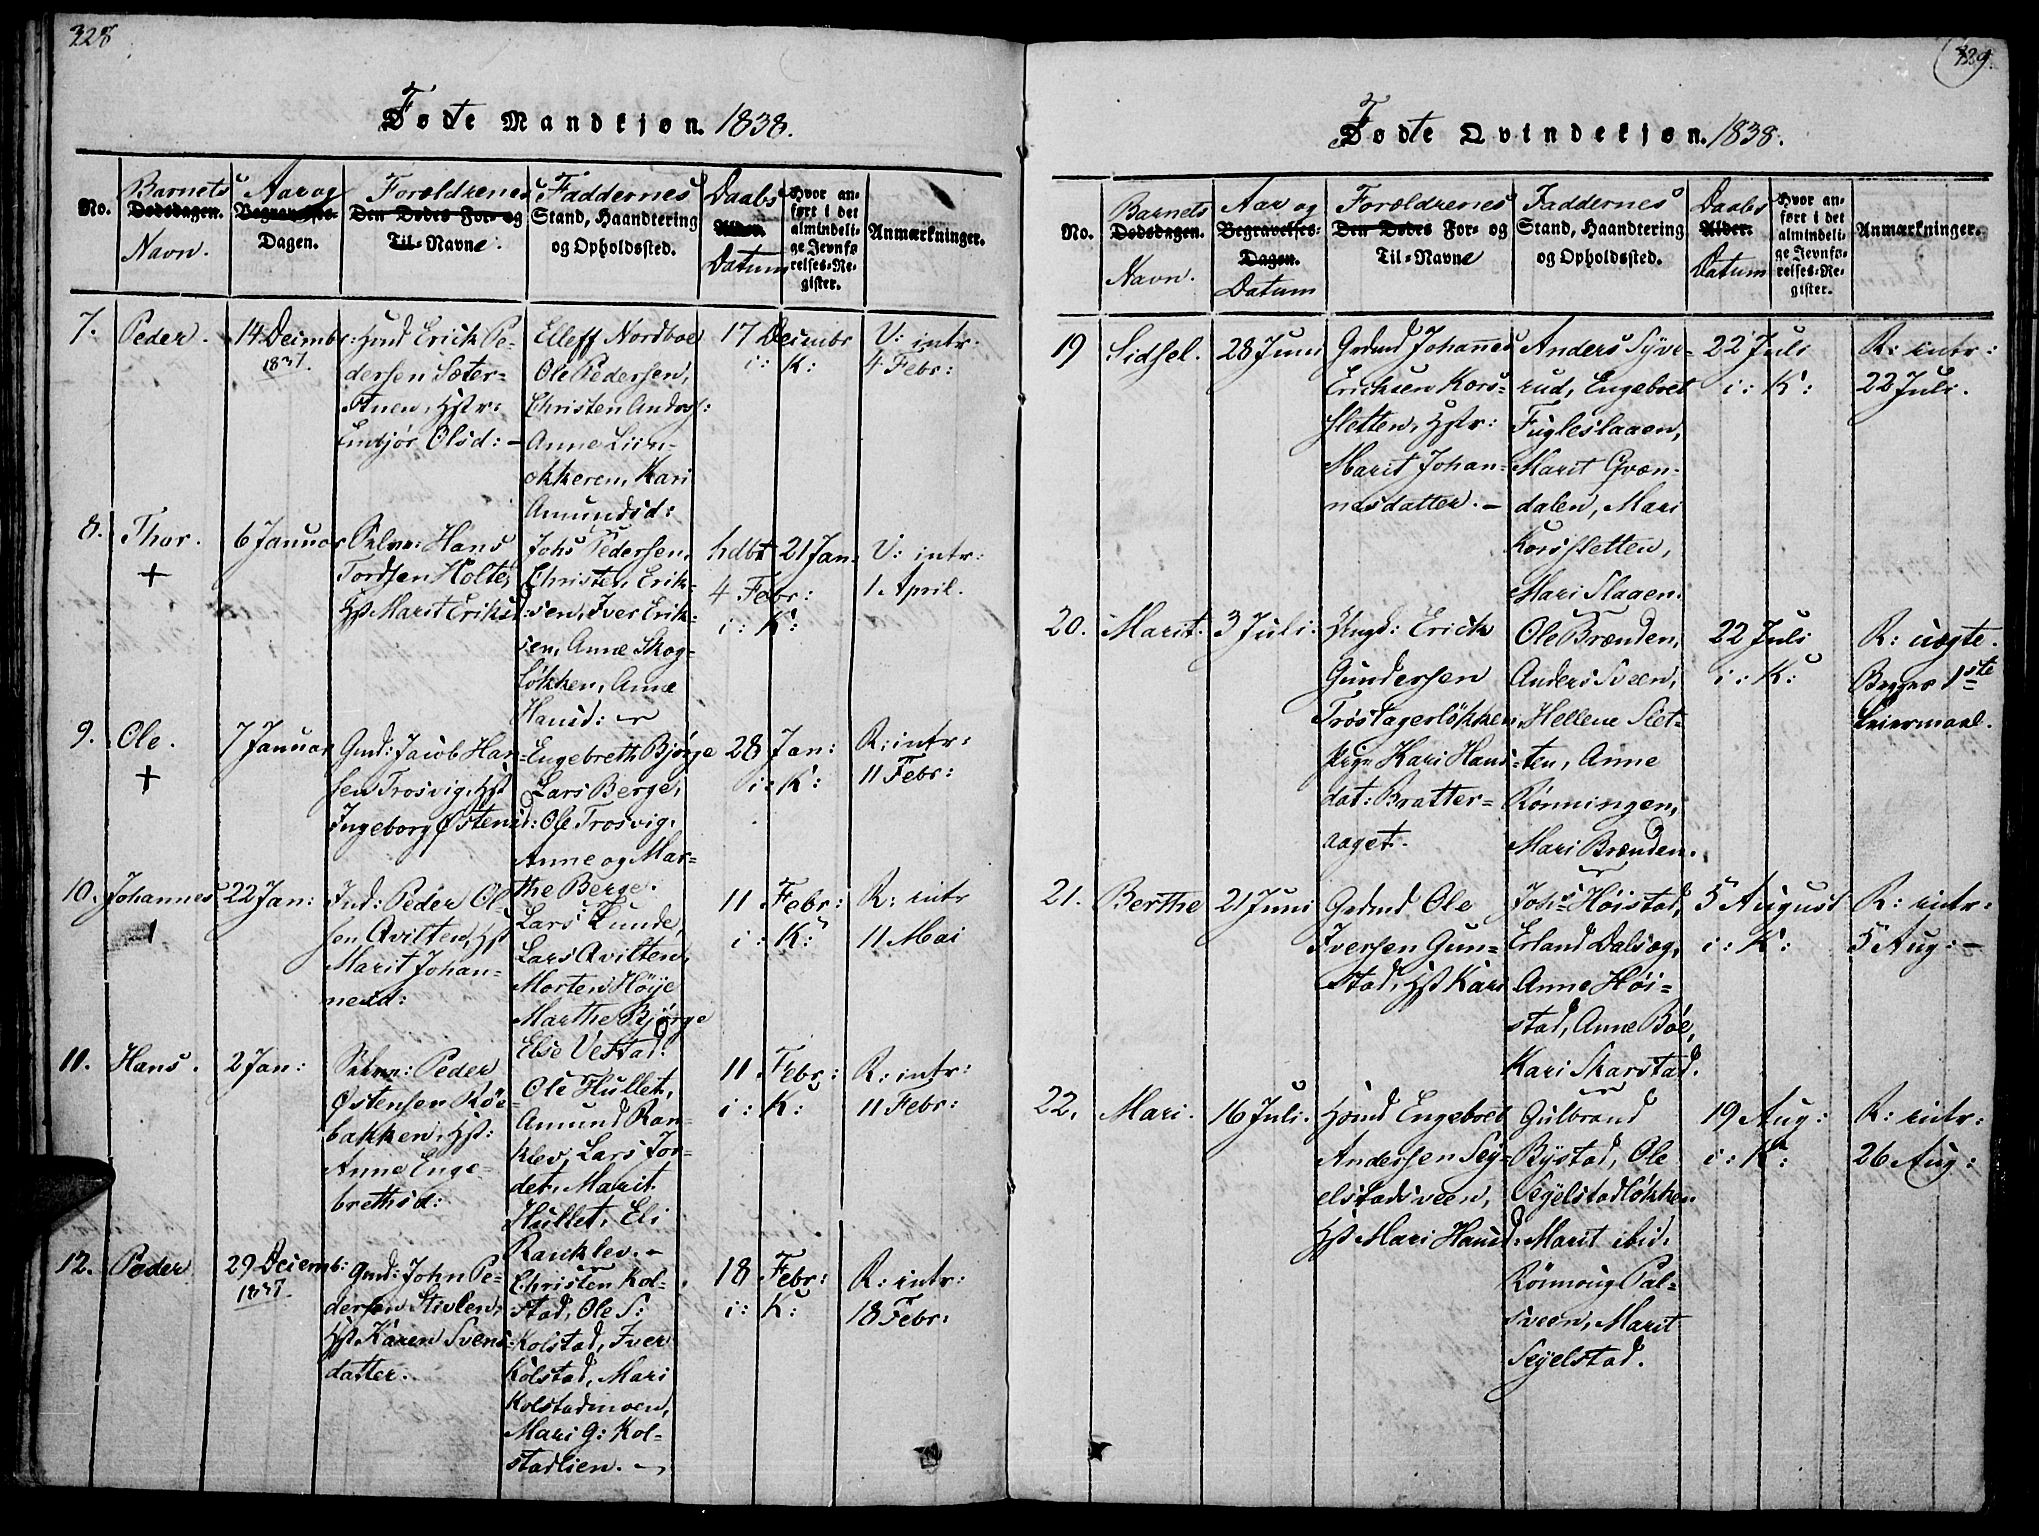 328
Fødte Mandkjøn. 1838.
No.
Barnets
Dødsdagen.
Navn.
Aar og
Begravelses-
Dagen.
Forældrenes
Den Dødes For- og
Til-Navne.
Faddernes
Stand, Haandtering
og Opholdssted.
Daabs
Alder.
Datum
Hvor an-
ført i det
almindeli-
ge Jevnfø-
relses-Re-
gister.
Anmærkninger.
7.
Peder.
14 Decimbr:
1837.
Hmd Erick Pe-
dersen Sæter-
Olsd: -
Elleff Nordboe
Ole Pedersen,
Christen Anders:
Anne Liin-
økkeren, Kari
Amundsd:
17 Decimbr
i: K:
V: intr.
4 Febr:
8.
Thor.
+
6 Januar
Hans
Tordsen Holte,
Hst. Marit Eriksd
Johs Pedersen,
Christen Erik-
sen, Iver Erik-
sen, Anne Skog-
løkken, Anne
Hansd:
hdbt 21 Jan.
4 Febr:
i: K:
V: intr:
1 April.
9.
Ole.
+
7 Januar
Gmd: Jacob Han-
sen Trosvig, Hst
Ingeborg Østensd:
Engebreth Bjørge
Lars Berge,
Ole Trosvig,
Anne og Mar-
the Berge.
28 Jan:
i: K:
R: intr:
11 Febr:
10.
Johannes
22 Jan:
Ind: Peder Ol-
sen Qvilten, Hst
Marit Johan-
nesd:
Lars Lunde,
Lars Qvilten,
Morten Höije
Marthe Bjørge
Else Vestad.
11 Febr:
i: K:
R: intr
11 Mai
11.
Hans.
2 Jan:
Peder
Østensen Röe-
bakken, Hst:
Anne Enge-
brethsd:
Ole Hullet,
Amund Ran-
klev, Lars Jor-
det, Marit
Hullet, Eli
Ranklev. -
11 Febr:
i: K:
R: intr:
11 Febr:
12.
Peder
29 Deiemb:
1837.
Gmd: John Pe-
dersen Stivlen,
Hst. Karen Svens-
datter.
Christen Kol-
stad, Ole S:
Kolstad, Iver
Kolstad, Mari
Kolstadmoen,
Mari G: Kol-
stadlien. -
18 Febr:
i: K:
R: intr:
18 Febr:
329.
Fødte Qvindekjøn. 1838.
No.
Barnets
Dødsdagen.
Navn.
Aar og
Begravelses-
Dagen.
Datum
Forældrenes
Den Dødes For- og
Til-Navne
Faddernes
Stand, Haandtering
og Opholdssted.
Daabs
Alder.
Datum
Hvor an-
ført i det
almindeli-
ge Jevnfø-
relses-Re-
gister.
Anmærkninger.
19
Sidsel.
28 Juni
Grdmd Johannes
Ericksen Kors-
sletten, Hstr:
Marit Johan-
nesdatter. -
Anders Syve-
rud, Engebret
Fugleslaaen,
Marit Qvæn-
dalen, Mari
Korssletten,
Mari Slaaen.
22 Juli
i: K:
R: intr:
22 Juli.
20.
Marit.
3 Juli.
Ungd: Erick
Gundersen
Trøstagerløkken
Pige Kari Hans-
dat: Bratter-
aaget.
Ole Brænden,
Anders Sveen,
Hellene Slet-
ten, Anne
Rönningen,
Mari Brænden.
22 Juli
i: K:
R: uægte.
Begges 1ste
Leiermaal.
21.
Berthe
21 Juni
Grdmd Ole
Iversen Gun-
stad, Hst Kari
Johs: Höistad,
Erland Dalseg,
Anne Höi-
stad, Anne Böe,
Kari Skarstad.
5 August
i: K:
R: intr:
5 Aug: -
22.
Mari.
16 Juli.
Hsmd Engebret
Andersen Sey-
elstadsveen,
Hst Mari Hansd.
Gulbrand
Bystad, Ole
Seyelstadløkken
Marit ibid.
Rönnoug Pal-
sveen, Marit
Seyelstad.
19 Aug:
i: K:
R: intr:
26 Aug: